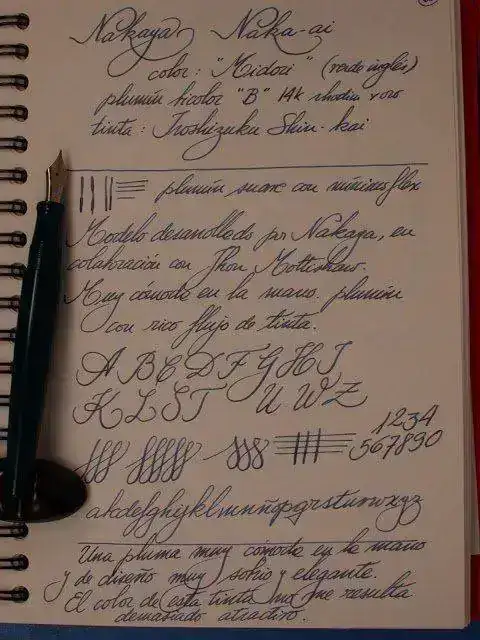 Nakaya Naka-ai
color: "Midori" (verde inglés)
plumín bicolor "B" 14k rhodio y oro
tinta: Iroshizuku Shin-kai
plumín suave con mínimo flex
Modelo desarrollado por Nakaya, en
colaboración con Jhon Mottishaw.
Muy cómoda en la mano. plumín
con rico flujo de tinta.
A B C D F G H I
K L S T U W Z
1234
567890
abcdefghijklmnñopqrstuvwxyz
Una pluma muy cómoda en la mano
y de diseño muy sobrio y elegante.
El color de esta tinta no me resulta
demasiado atractivo.